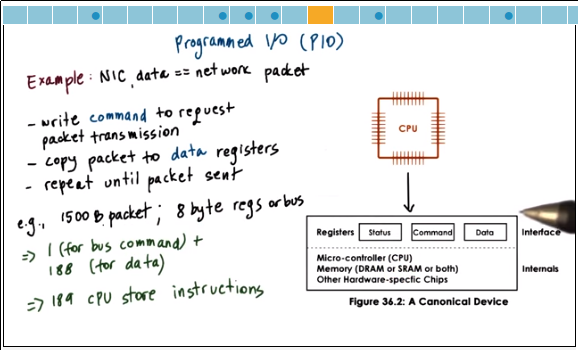 Programmed I/O (PIO)
Example: NIC, data == network packet
- write command to request
packet transmission
- copy packet to data registers
- repeat until packet sent
e.g., 1500 B packet; 8 byte regs or bus
=> 1 (for bus command) +
188 (for data)
=> 189 CPU store instructions
CPU
Registers Status Command Data Interface
Micro-controller (CPU)
Memory (DRAM or SRAM or both) Internals
Other Hardware-specfic Chips
Figure 36.2: A Canonical Device